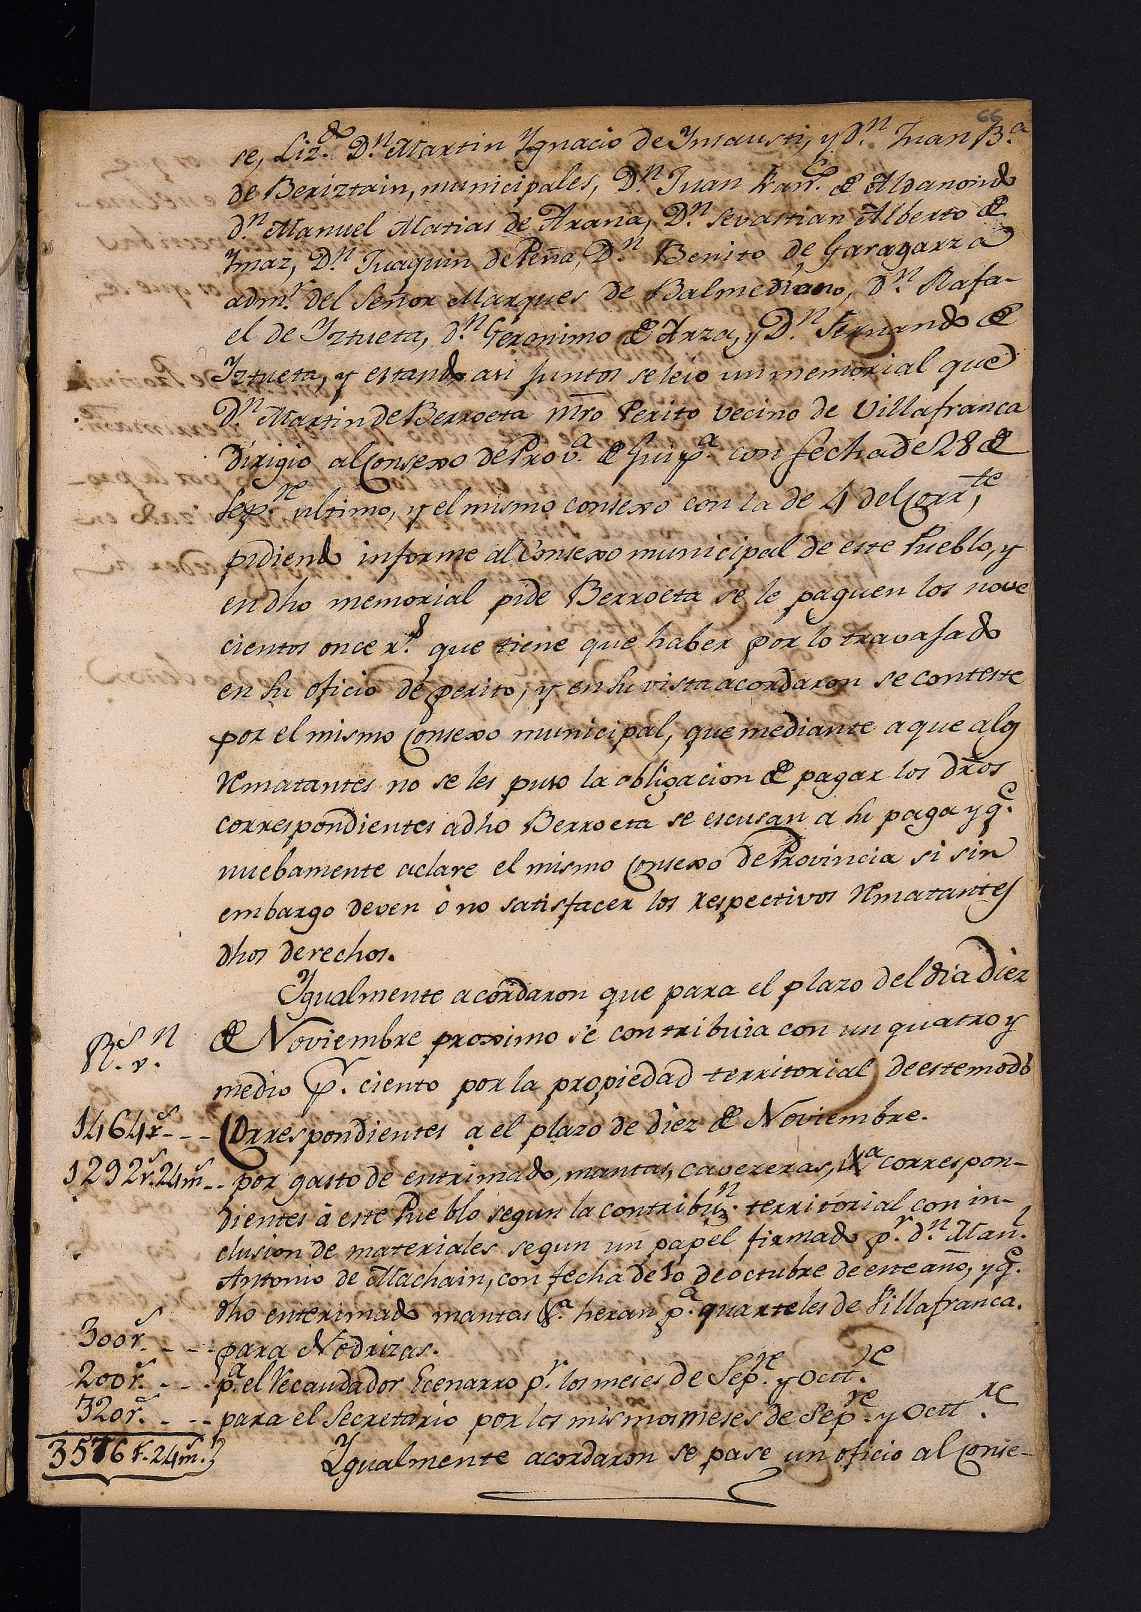 66
se, Liz.do D.n Martin Ygnacio de Ynsausti, y D.n Juan B.a
de Beriztain, municipales, D.n Juan Fran.co de Aldanondo
d.n Manuel Matias de Arana, D.n Sevastian Alberto de
Ymaz, D.n Juaquin de Peña, D.n Benito de Garagarza
adm.r del Señor Marques de Balmediano, D.n Rafa-
el de Yztueta, d.n Geronimo de Arza, y D.n Fernando de
Yztueta, y estando asi juntos se leio un memorial que
D.n Martin de Berroeta Mro Perito vecino de Villafranca
dirigio al Consexo de Prov.a de Guip.a con fecha de 28 de
Sep.re ultimo, y el mismo consexo con la de 4 del Corr.te,
pidiendo informe al Consexo municipal de este Pueblo, y
en dho memorial pide Berroeta se le paguen los nove
cientos once r.s que tiene que haber por lo travajado
en su oficio de perito, y en su vista acordaron se conteste
por el mismo Consexo municipal, que mediante a que a los
Rematantes no se les puso la obligacion de pagar los dros
correspondientes a dho Berroeta se escusan a su paga y q.e
nuebamente aclare el mismo Consexo de Provincia si sin
embargo deven ò no satisfacer los respectivos Rematantes
dhos derechos.
Ygualmente acordaron que para el plazo del dia diez
de Noviembre proximo se contribuia con un quatro y
R.s v.n
medio p.r ciento por la propiedad territorial de este modo
1464 r.s --- Correspondientes a el plazo de diez de Noviembre.
1292 r.s 24 m.s -- por gasto de entrimado, mantas, cavereras, &a correspon-
dientes à este Pueblo segun la contribu.n territorial con in-
clusion de materiales segun un papel firmado p.r d.n Man.l
Antonio de Machain, con fecha de 10 de octubre de este año, y q.e
dho enterimado mantas &a heran p.a quarteles de Villafranca.
300 r.s --- para Nodrizas.
200 r.s --- p.a el Recaudador Ecenarro p.r los meses de Sep.re y Oct.re
320 r.s --- para el Secretario por los mismos meses de Sep.re y Oct.re
3576 r.s 24 m.s
Ygualmente acordaron se pase un oficio al Conse-